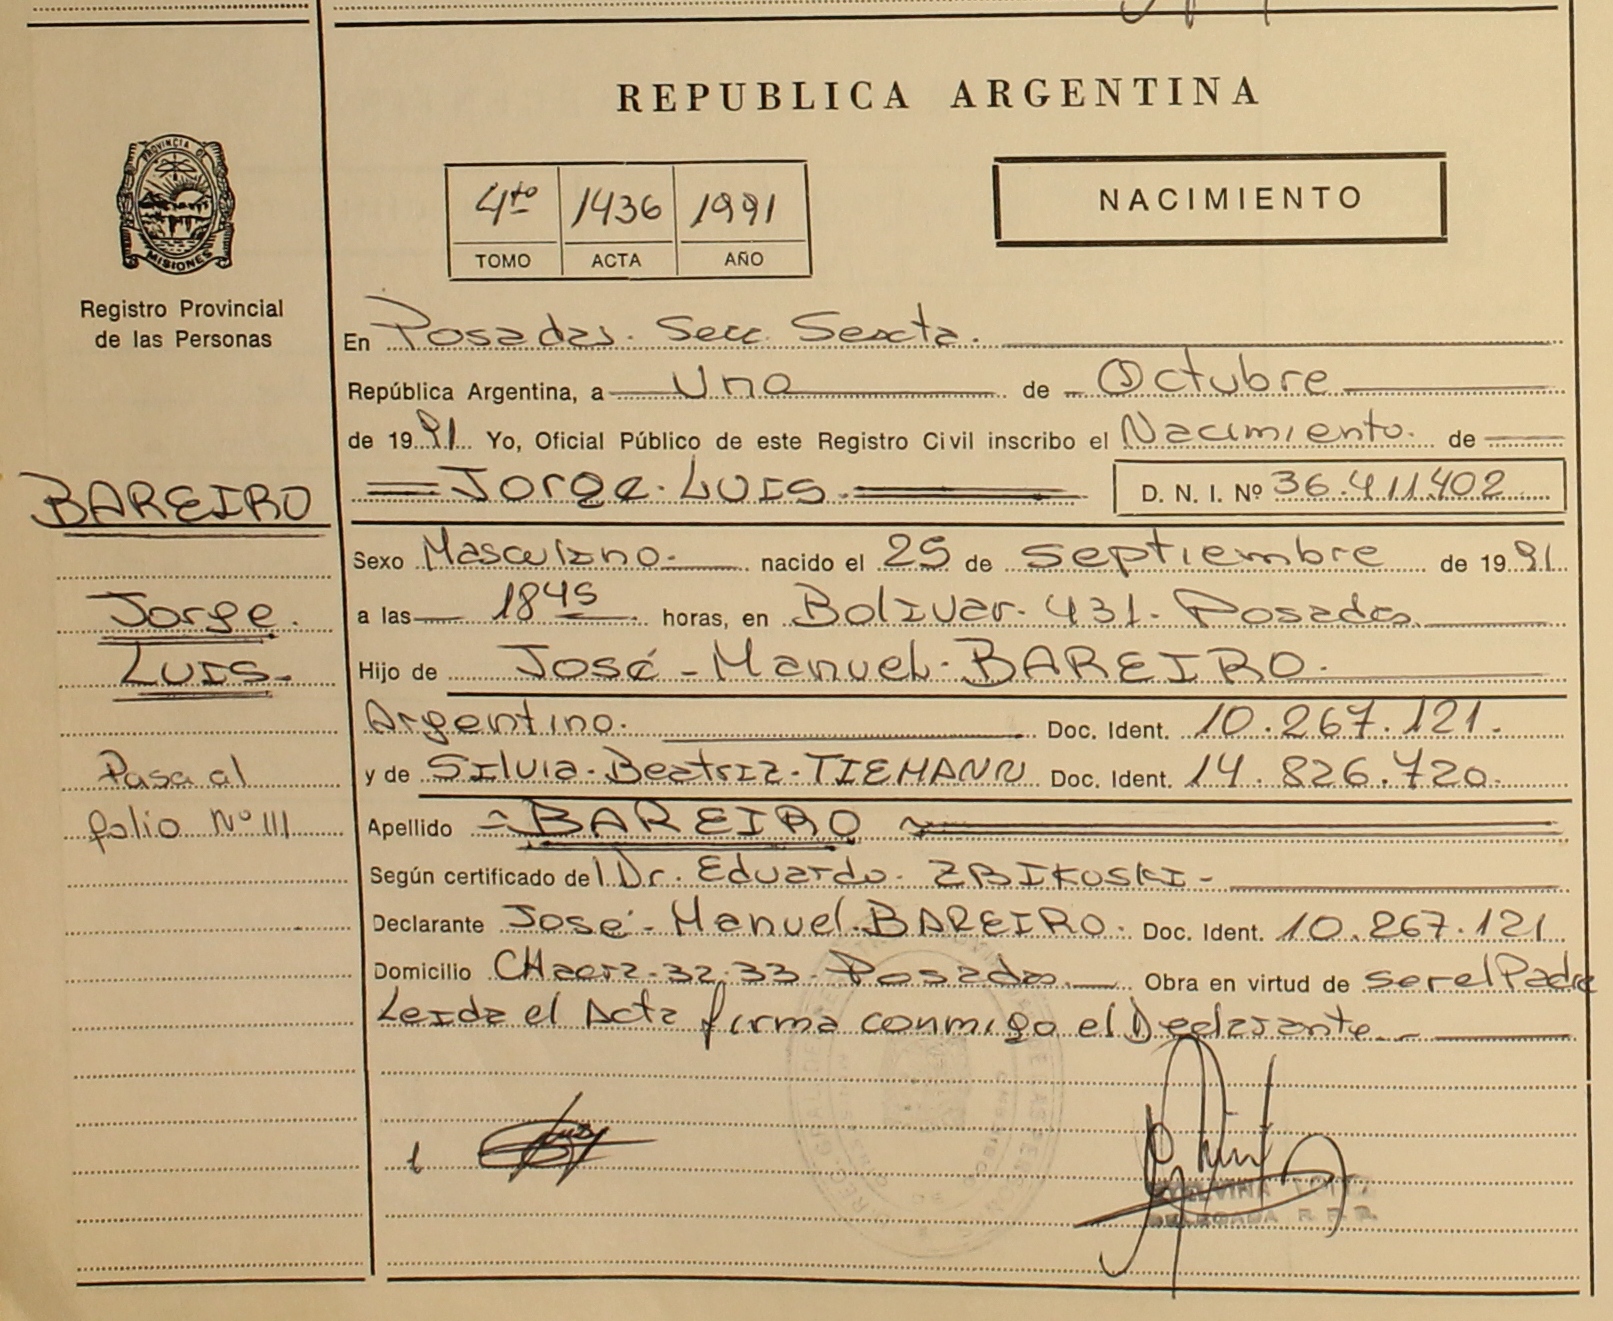 REPUBLICA ARGENTINA
PROVINCIA DE
MISIONES
Registro Provincial
de las Personas
4to 1436 1991
TOMO ACTA AÑO
NACIMIENTO
En Posadas. Secc. Sexta.
República Argentina, a Uno de Octubre
de 1991 Yo, Oficial Público de este Registro Civil inscribo el Nacimiento. de
Jorge. Luis D. N. I. Nº 36.411.402
BAREIRO
Jorge.
Luis.
Pasa al
folio Nº 111
Sexo Masculino nacido el 25 de Septiembre de 1991
a las 18 45 horas, en Bolivar. 431. Posadas.
Hijo de José - Manuel. BAREIRO.
Argentino. Doc. Ident. 10.267.121.
y de Silvia-Beatriz-TIEMANN Doc. Ident. 14.826.720.
Apellido BAREIRO
Según certificado del Dr. Eduardo. ZBIKOSKI-
Declarante José- Manuel. BAREIRO. Doc. Ident. 10.267.121
Domicilio CH 32-33-Posadas. Obra en virtud de ser el Padre
Leida el Acta firma conmigo el Declarante.
DELEGADA R. P. P.